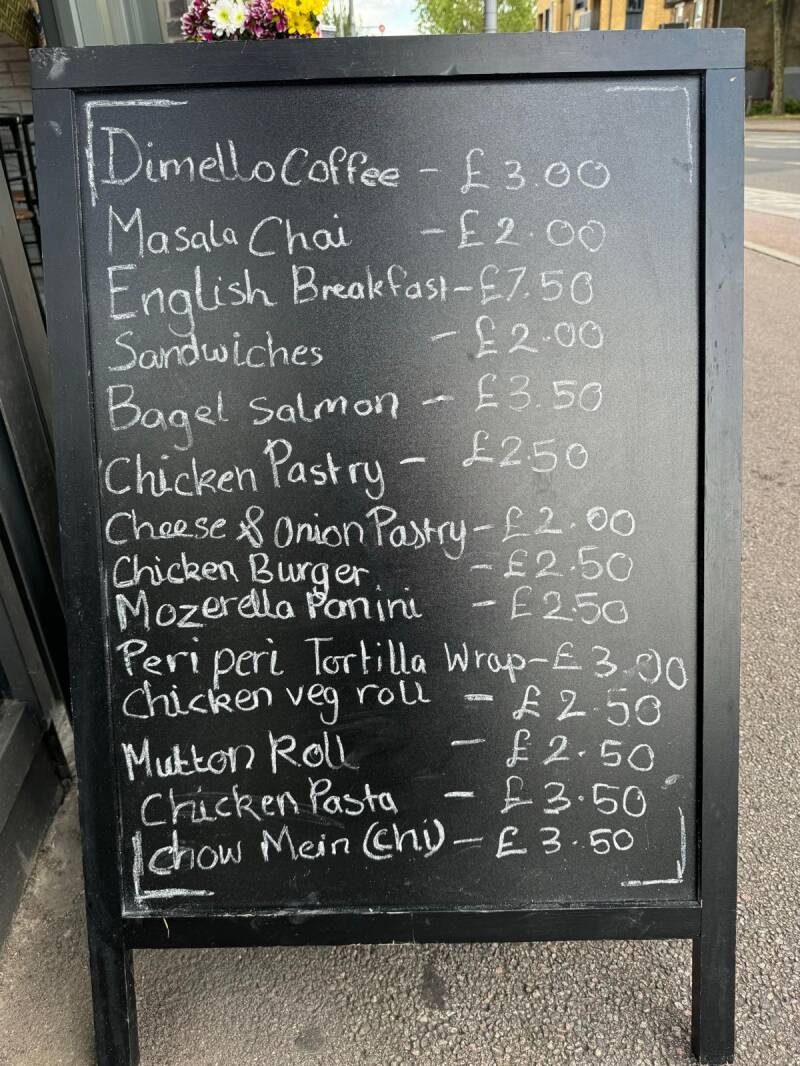 Dimello Coffee - £3.00
Masala Chai - £2.00
English Breakfast - £7.50
Sandwiches - £2.00
Bagel Salmon - £3.50
Chicken Pastry - £2.50
Cheese & Onion Pastry - £2.00
Chicken Burger - £2.50
Mozerella Panini - £2.50
Peri peri Tortilla Wrap - £3.00
Chicken veg roll - £2.50
Mutton Roll - £2.50
Chicken Pasta - £3.50
Chow Mein (Chi) - £3.50